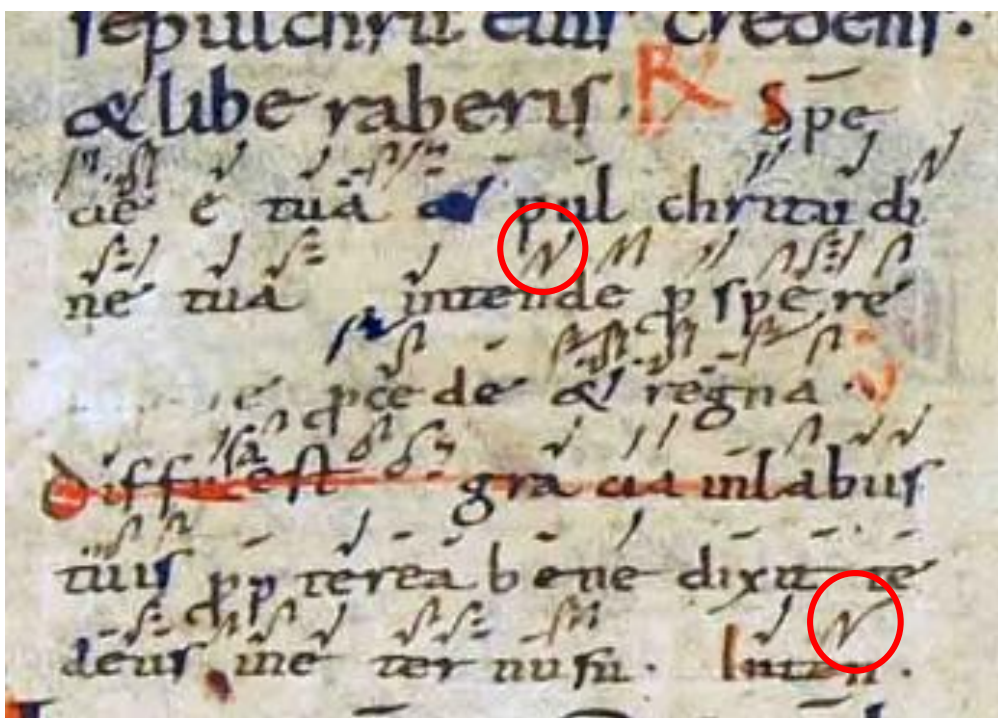 sepulchru eius credens.
& liberaberis. R Spe
cie tua & pulchritudi
ne tua intende pspere
pcede & regna. V
Diffu est gracia inlabiis
tuis pp terea benedixit te
deus ineternum. Inten.